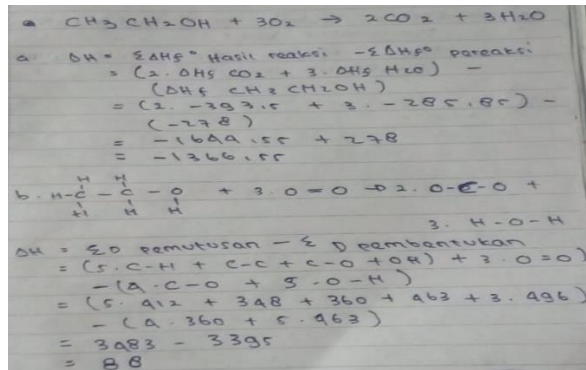 CH3 CH2OH + 3O2 → 2CO2 + 3H2O
a. ΔH = ΣΔHf° Hasil reaksi - ΣΔHf° pereaksi
= (2. ΔHf CO2 + 3. ΔHf H2O) -
(ΔHf CH3 CH2OH)
= (2. -393.5 + 3. -285.85) -
(-278)
= -1644.55 + 278
= -1366.55
H H
b. H-C - C - O + 3. O=O → 2. O-C-O +
H H H
3. H-O-H
ΔH = ΣD pemutusan - Σ D pembentukan
= (5. C-H + C-C + C-O + OH) + 3. O=O)
- (4. C-O + 5. O-H)
= (5. 412 + 348 + 360 + 463 + 3. 496)
- (4. 360 + 5. 463)
= 3483 - 3395
= 88